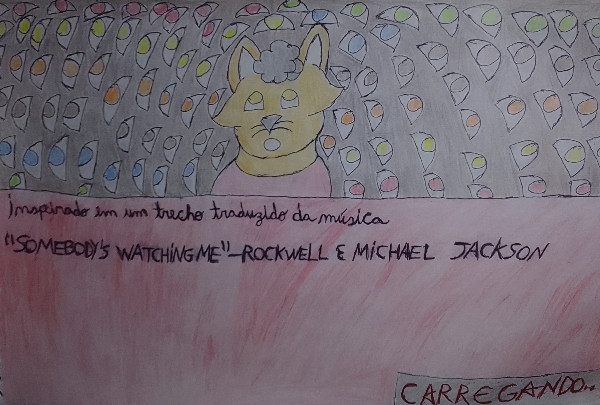 inspirado em um trecho traduzido da música
"SOMEBODY'S WATCHING ME"—ROCKWELL & MICHAEL JACKSON
CARREGANDO...